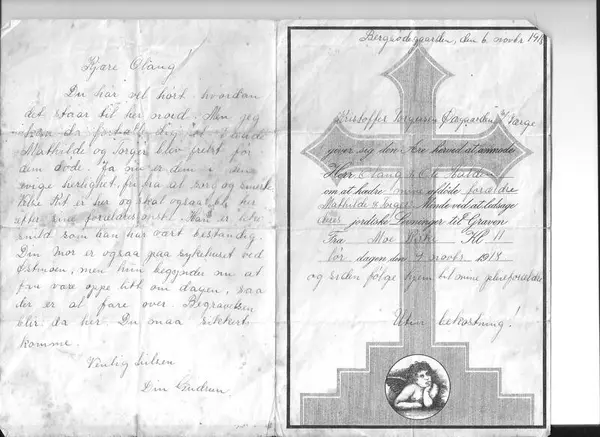 Kjære Olaug!
Du har vel hørt hvordan
det staar til her nord. Men jeg
kan da fortælle dig at baade
Mathilde og Torger blev freist for
dem døde. Ja nu er dem i den
evige herlighet, fri fra al sorg og smerte.
er her og skal ogsaa bli her
efter sine forældres ønske. Han er like
snild som han har vært bestandig.
Din mor er ogsaa paa sykehuset ved
men hun begynder nu at
faa være oppe litt om dagen, saa
der er al fare over. Begravelsen
blir da her. Du maa sikkert
komme.
Venlig hilsen
Din Gudrun
Bergaadegaarden, den 6 novbr 1918
Kristoffer Torgersen
giver sig den Ære herved at anmode
Herr Olaug & Ole
om at hædre mine afdøde forældre
Mathilde & Torger Minde ved at ledsage
deres jordiske Levninger til Graven
Fra Moe Kirke Kl 11
Lør dagen den 9 novbr 1918
og siden følge hjem til mine pleieforældre
Uten bekostning!